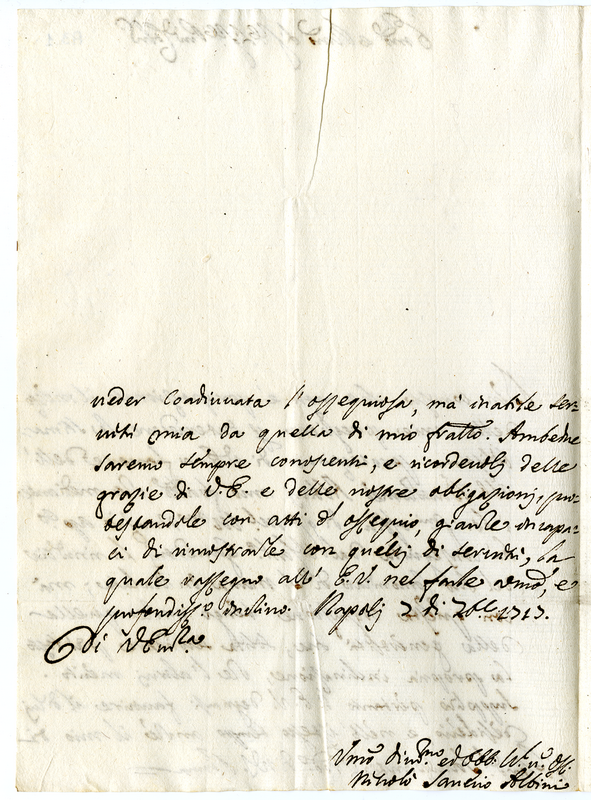 veder coadiuvata l'ossequiosa, mà inutile ser-
vitù mia da quella di mio fratto. Ambedue
saremo sempre conoscenti, e ricordevoli delle
grazie di V.E. e delle nostre obligazioni, pro-
testandole con atti d'ossequio, giache incapa-
ci di rimostrarle con quelli di servitù, la
quale rassegno all' E.V. nel farle
profondiss.o inclino. Napoli 2 di 7bre 1717.
Di V. Em.za
Umo ed Obb.
Nicolò Sanchio Albini